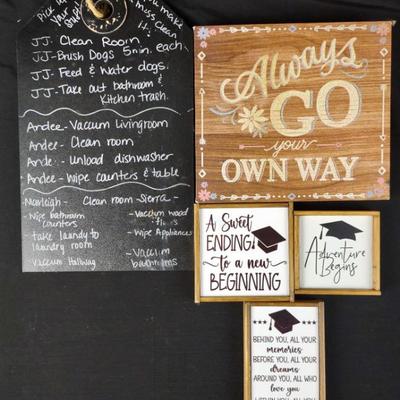 Pick up
you make
your
miss. Clean
it.
JJ- Clean Room
JJ- Brush Dogs 5min. each
JJ- Feed & Water dogs.
JJ- Take out bathroom &
Kitchen trash.
Andee- Vaccum Livingroom
Andee- Clean room
Andee- Unload dishwasher
Andee- Wipe counters & table
Clean room Sierra-
- Wipe bathroom
counters
- take laundry to
laundry room
- Vaccum Hallway
- Vaccum wood
- Wipe Appliances
- Vaccum
bathrooms
Always
GO
your
OWN WAY
A Sweet
ENDING
to a new
BEGINNING
Adventure
Begins
BEHIND YOU, ALL YOUR
memories
BEFORE YOU, ALL YOUR
dreams
AROUND YOU, ALL WHO
love you
WITHIN YOU, ALL YOU